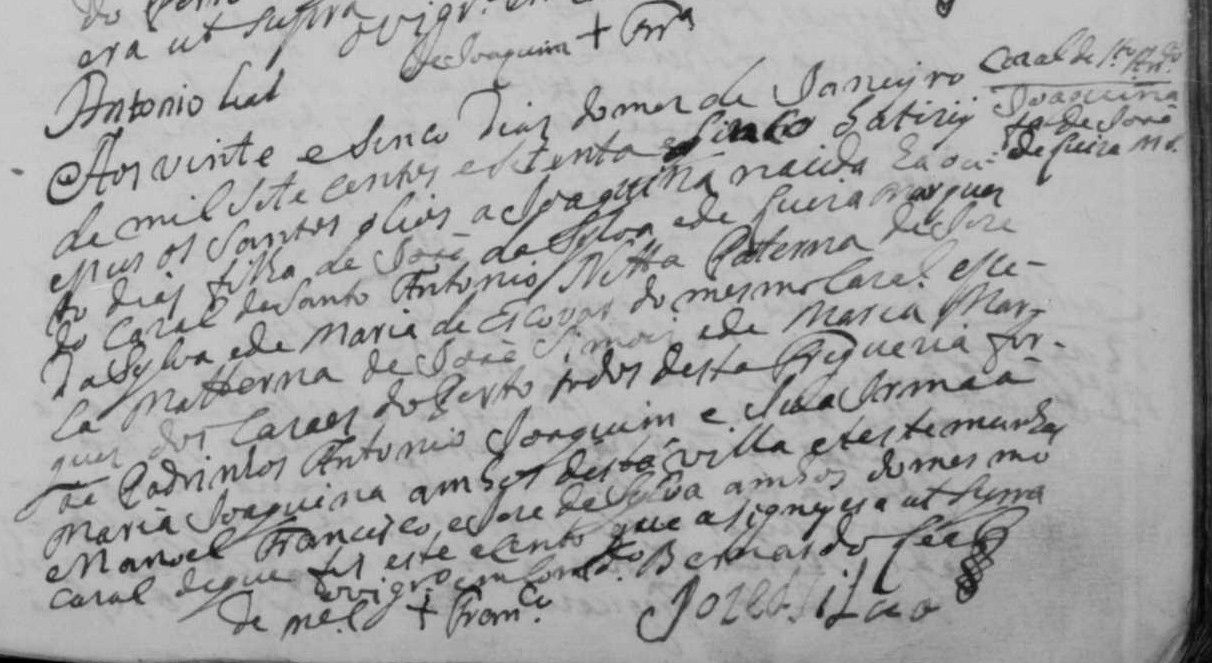 era ut supra o vigr.º en
de Joaquim + Frr.ª
Antonio Leal
Casal de S.to Ant.º
Joaquina
f.ª de Jozé
de fueira Mº.
Aos vinte e sinco Dias do mes de Janeyro
de mil sete centos e setenta e sinco batizij
e pus os santos olios a Joaquina nacida ha oi-
to dias filha de José da Sylva e de fueira marques
do Casal de Santo Antonio Netta Paterna de Jose
da Sylva e de Maria de Escovar do mesmo Casal e pe-
la Matterna de José Simois e de Maria Mar-
ques dos Casaes do Porto todos desta Freguezia for-
ão Padrinhos Antonio Joaquim e sua Irmaã
Maria Joaquina ambos desta villa e testemunhas
Manoel Francisco e Jose da Sylva ambos do mesmo
Casal de que fis este acento que asigney era ut supra
o vigr.º em Comdº. Bernardo Leal
de M.el + Fran.co
Joze da Silva